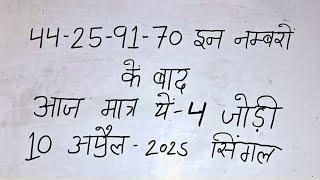 44-25-91-70 इन नम्बरो
के बाद
आज मात्र ये-4 जोड़ी
10 अप्रैल - 2025 सिंगल